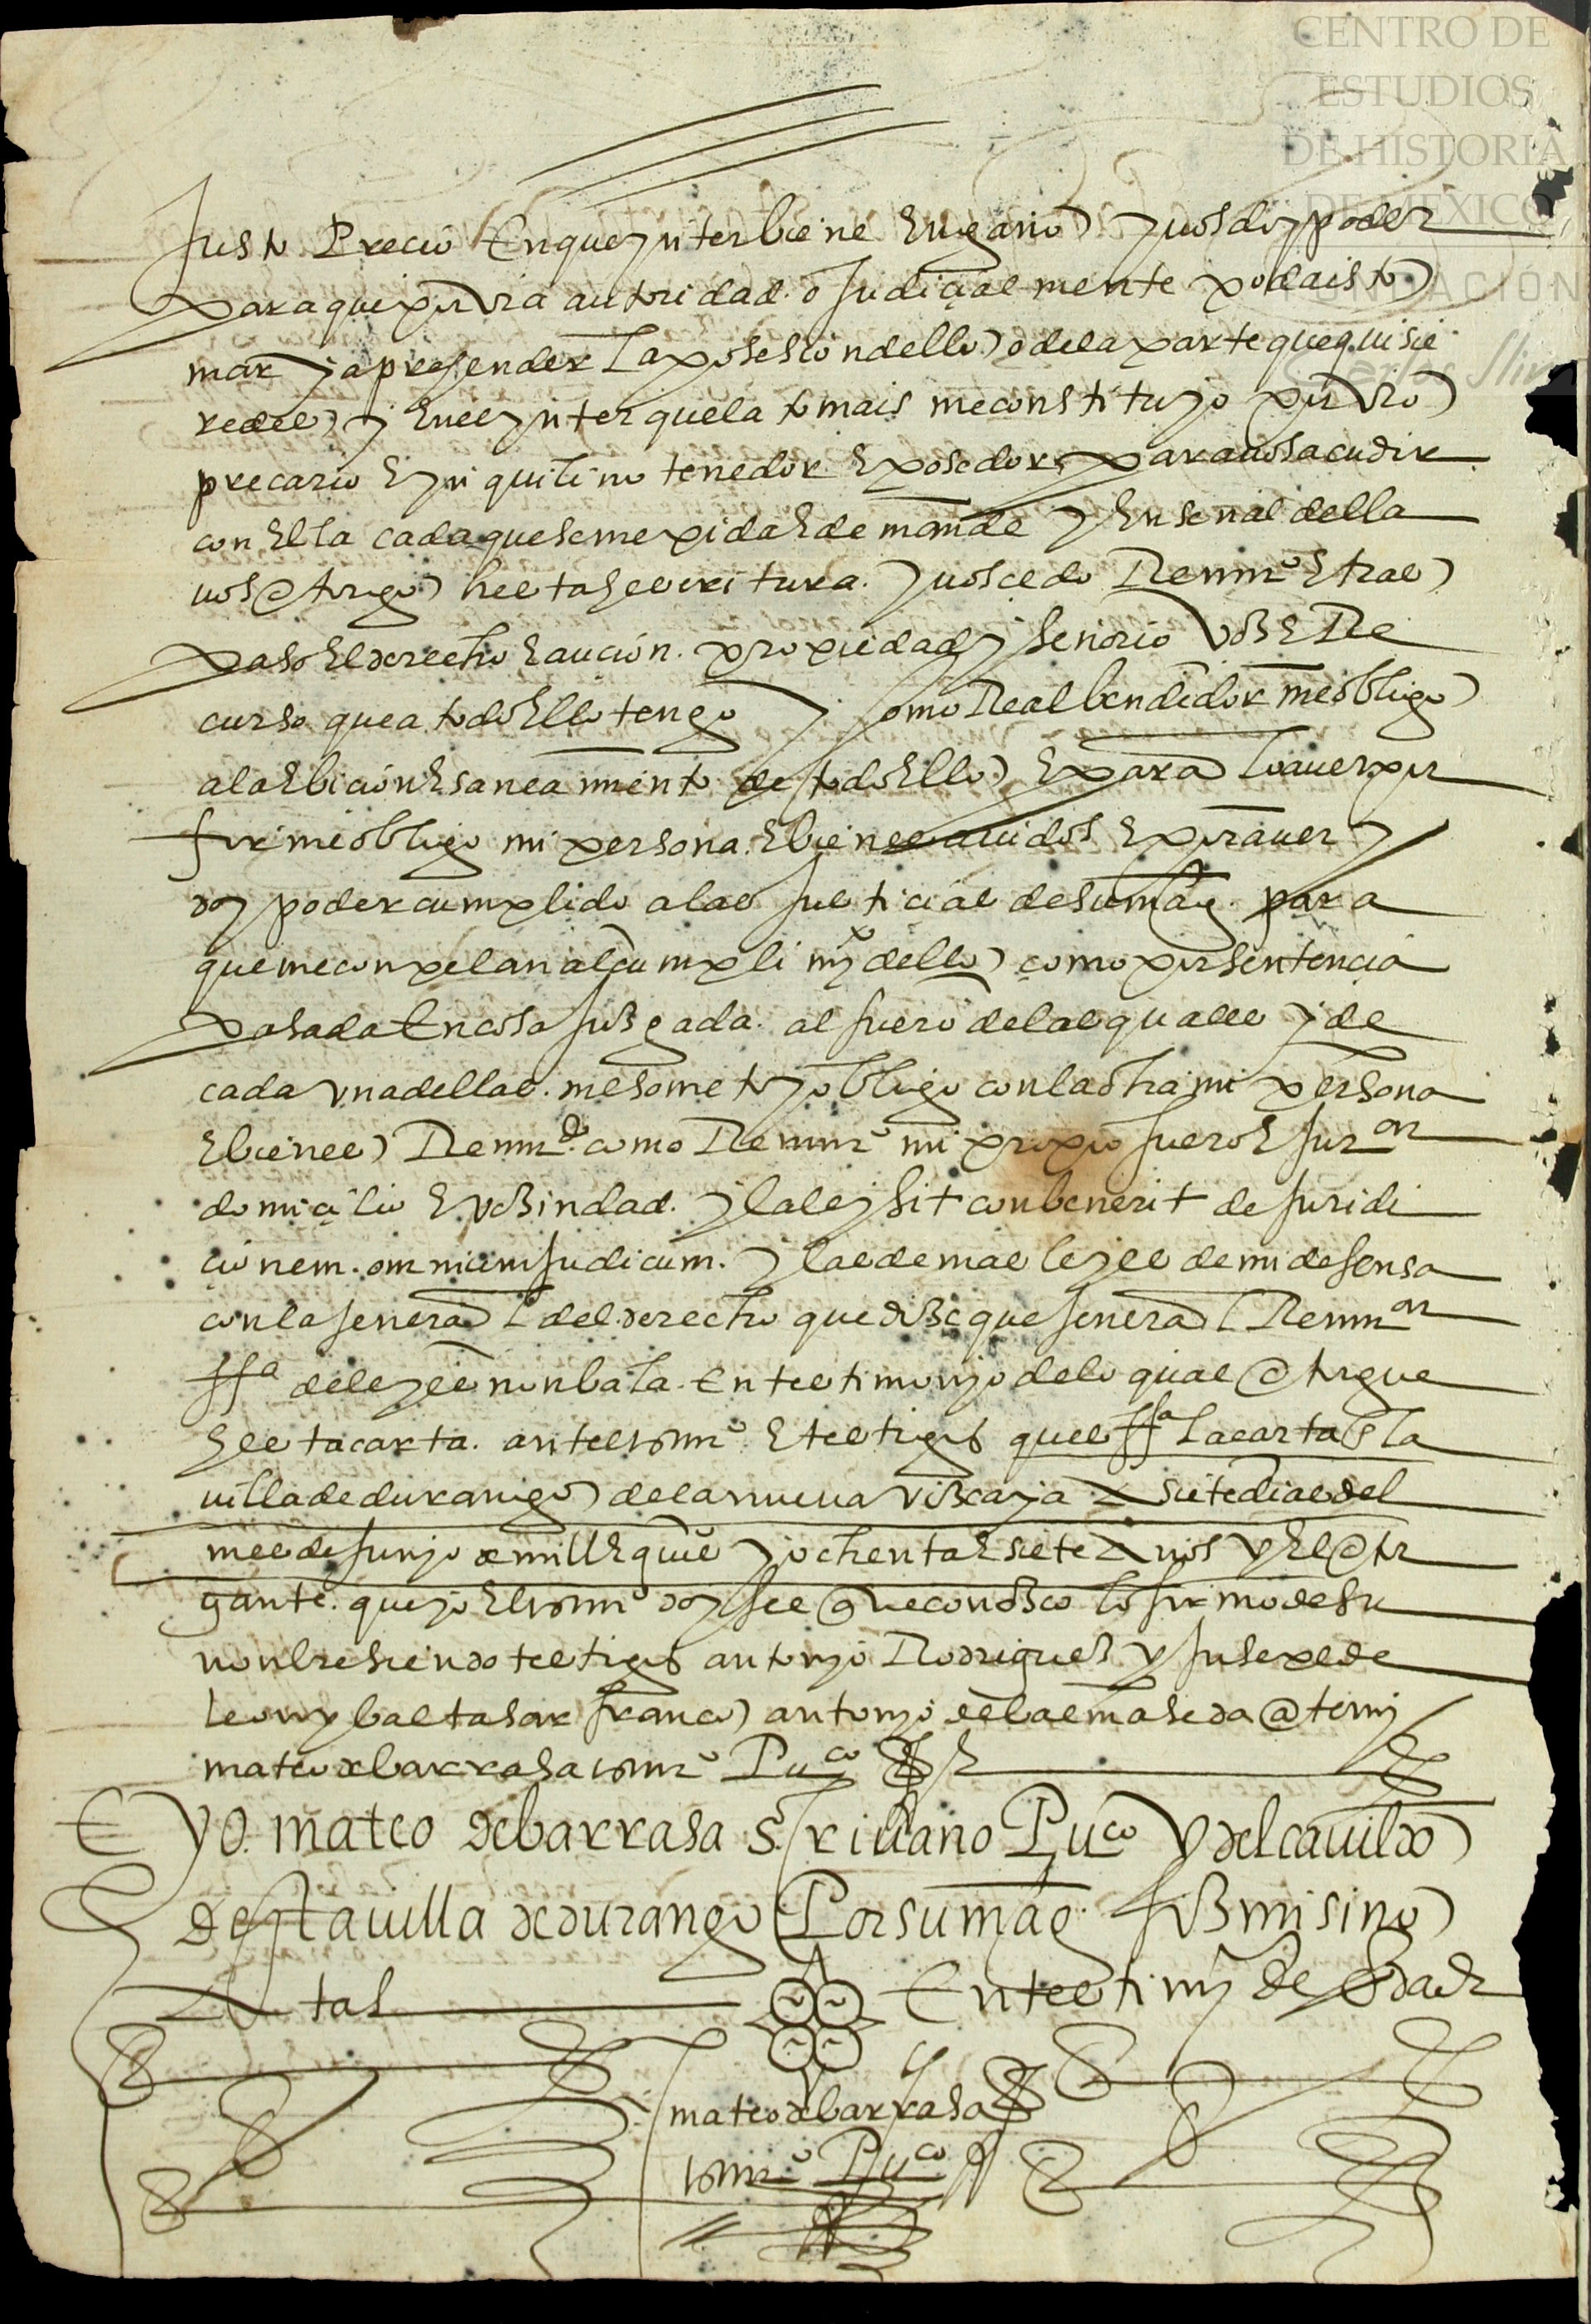 CENTRO DE
ESTUDIOS
DE HISTORIA
DE MEXICO
FUNDACIÓN
Carlos Slim
justo precio en que ynterbiene engaño y uos doy poder
para que por vra autoridad o judicialmente podais to
mar y aprehender la posesion dello o de la parte que quisie
redes y en el ynter que la tomais me constituyo por vro
precario e ynquilino tenedor e posedor para a uos acudir
con ella cada que se me pida e demande y en señal della
uos otorgo he esta scritura y uos cedo Renunº e tras
paso el derecho e aucion propiedad y señorio vos e Re
curso que a todo ello tengo y como Real bendedor me obligo
a la ebicion e saneamiento de todo ello e para lo auer por
firme obligo mi persona e bienes auidos e por auer y
doy poder cumplido a las justicias de su mag para
que me conpelan al cumplimyº dello como por sentencia
pasada en cosa jusgada al fuero de las quales y de
cada vna dellas me someto y obligo con la dha mi persona
e bienes Renundº como Renunº mi propio fuero e juron
domicilio e vesindad y la ley sit conbenerit de juridi
cionem omnium judicum y las demas leyes de mi defensa
con la jeneral del derecho que dise que jeneral Renunon
ffa de leyes non bala en testimonyo de lo qual otorgue
he esta carta ante scriuº e testigos que es ffa la carta en la
uilla de durango de la nueua viscaya a siete dias del
mes de junyo de mill e quis y ochenta e siete años y el otor
gante que yo el scriuº doy fee que conosco lo firmo de su
nonbre siendo testigos antonyo Rodrigues y jusepe de
leon y baltasar franco antonyo de balmaseda ante my
mateo de barrasa scriuº Puco
E yo mateo de barrasa scriuano Puco y del cauildo
desta uilla de durango Por su mag fis mi sino
a tal en testimº de verdad
mateo de barrasa
scriuº Puco